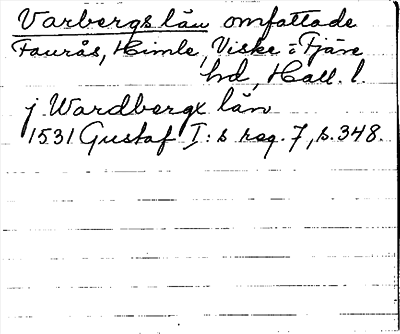 Varbergs län omfattade
Faurås, Himle, Viske o Fjäre
hd, Hall. l.
j Wardbergx län
1531 Gustaf I:s reg. 7, s. 348.